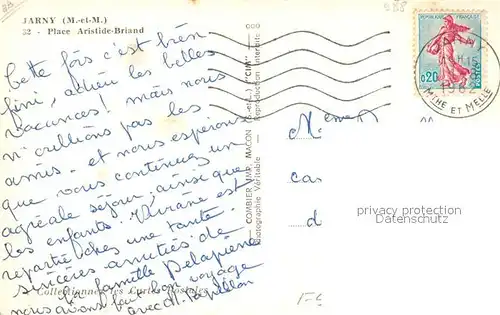 JARNY (M.-et-M.)
32 - Place Aristide-Briand
Cette fois c'est bien
fini, adieu les belles
vacances ! mais nous
n'oublions pas les
amis - et nous espérons
que vous continuez un
agréable séjour, ainsi que
les enfants. est
repartie chez une tante.
sincères amitiés de
la famille Delapierre
nous avons fait bon voyage
avec M. Papillon
Collectionnez les Cartes Postales
COMBIER IMP. MACON (S.-et-L.) "CIM"
Photographie Véritable - Reproduction interdite
REPUBLIQUE FRANÇAISE
0,20
POSTES
JARNY
1962
MTHE ET MELLE
M
cas
d
privacy protection
www.oldthing.de